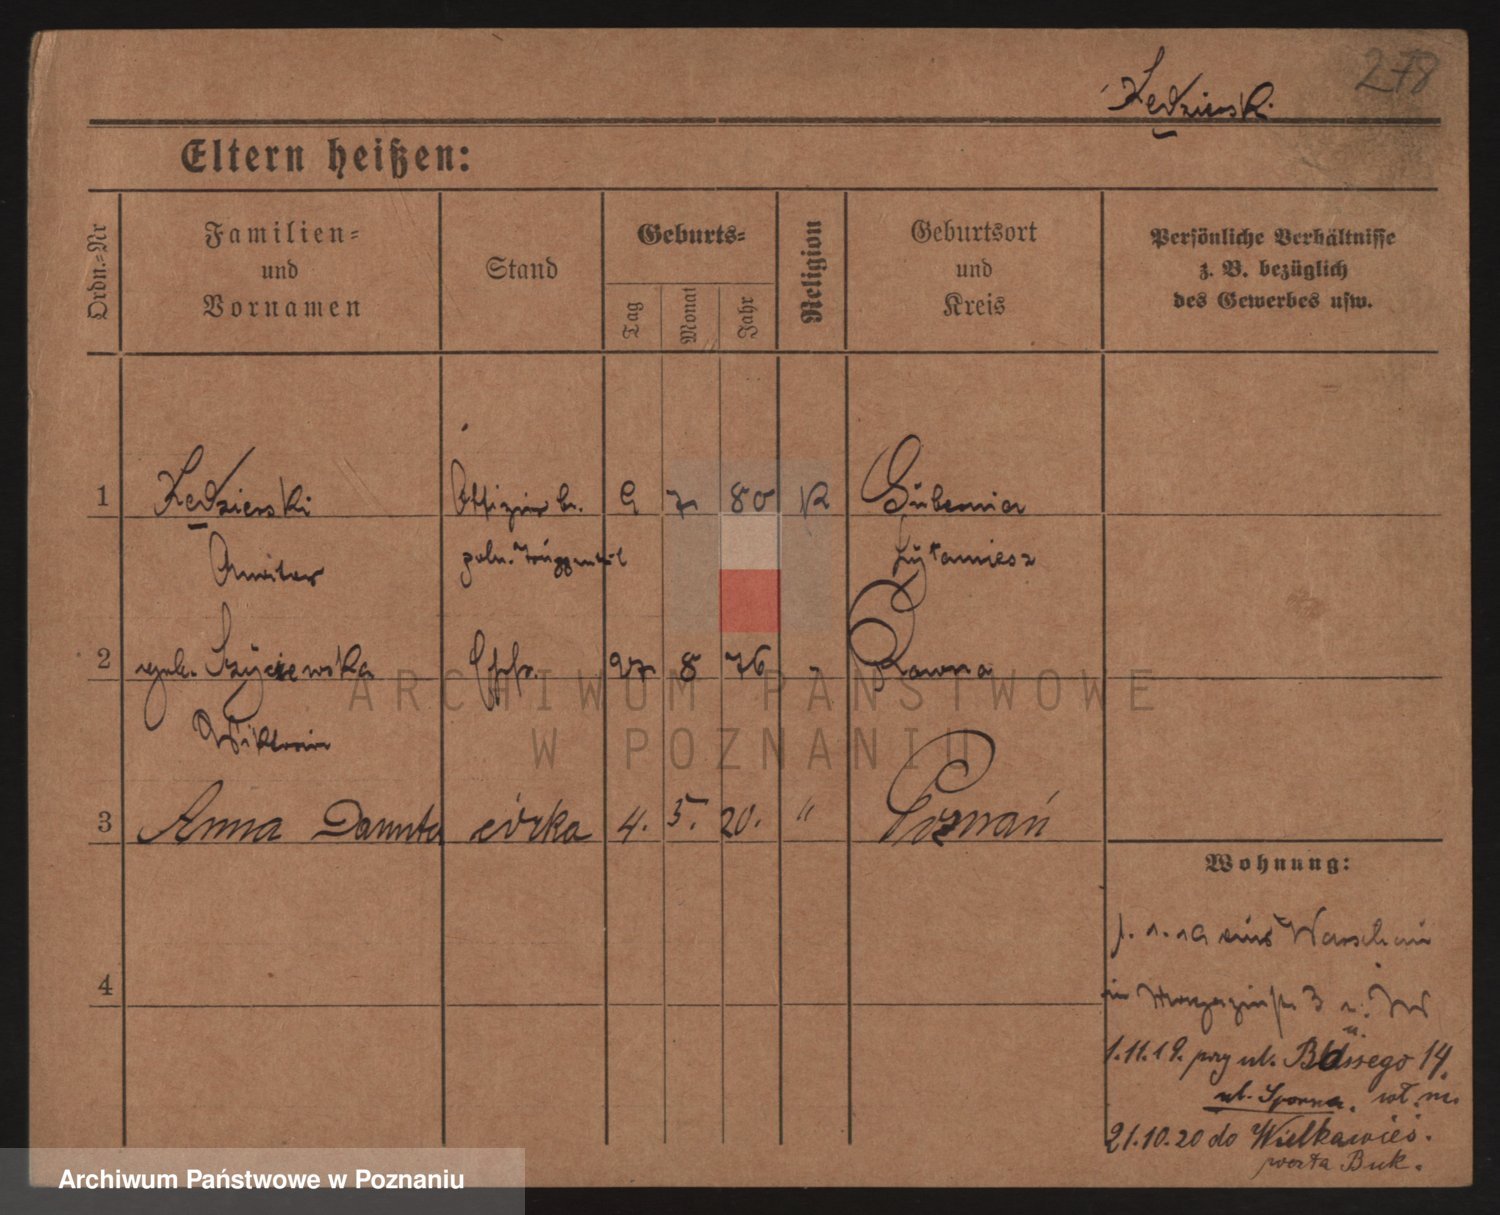 278
Kędzierski
Eltern heißen:
Ordn.-Nr
Familien-
und
Vornamen
Stand
Geburts-
Tag
Monat
Jahr
Religion
Geburtsort
und
Kreis
Persönliche Verhältnisse
z. B. bezüglich
des Gewerbes usw.
1 Kędzierski Offizier 9 7 80 K Gubernia
poln.
2 Szyciewska Ehefr. 27 8 76 " Rawna
3 Anna Danuta córka 4. 5. 20. " Poznań
Wohnung:
aus Warschau
in 3
1.11.19. przy ul. 14.
ul. Sporna. wł. m.
4
21.10.20 do Wielkawieś.
poczta Buk.
ARCHIWUM PAŃSTWOWE
W POZNANIU
Archiwum Państwowe w Poznaniu